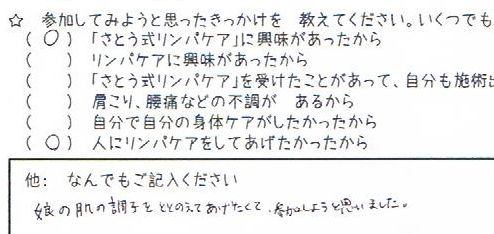 ☆ 参加してみようと思ったきっかけを 教えてください。いくつでも
( ○ ) 「さとう式リンパケア」に興味があったから
( ) リンパケアに興味があったから
( ) 「さとう式リンパケア」を受けたことがあって、自分も施術出
( ) 肩こり、腰痛などの不調が あるから
( ) 自分で自分の身体ケアがしたかったから
( ○ ) 人にリンパケアをしてあげたかったから
他: なんでもご記入ください
娘の肌の調子をととのえてあげたくて、参加しようと思いました。